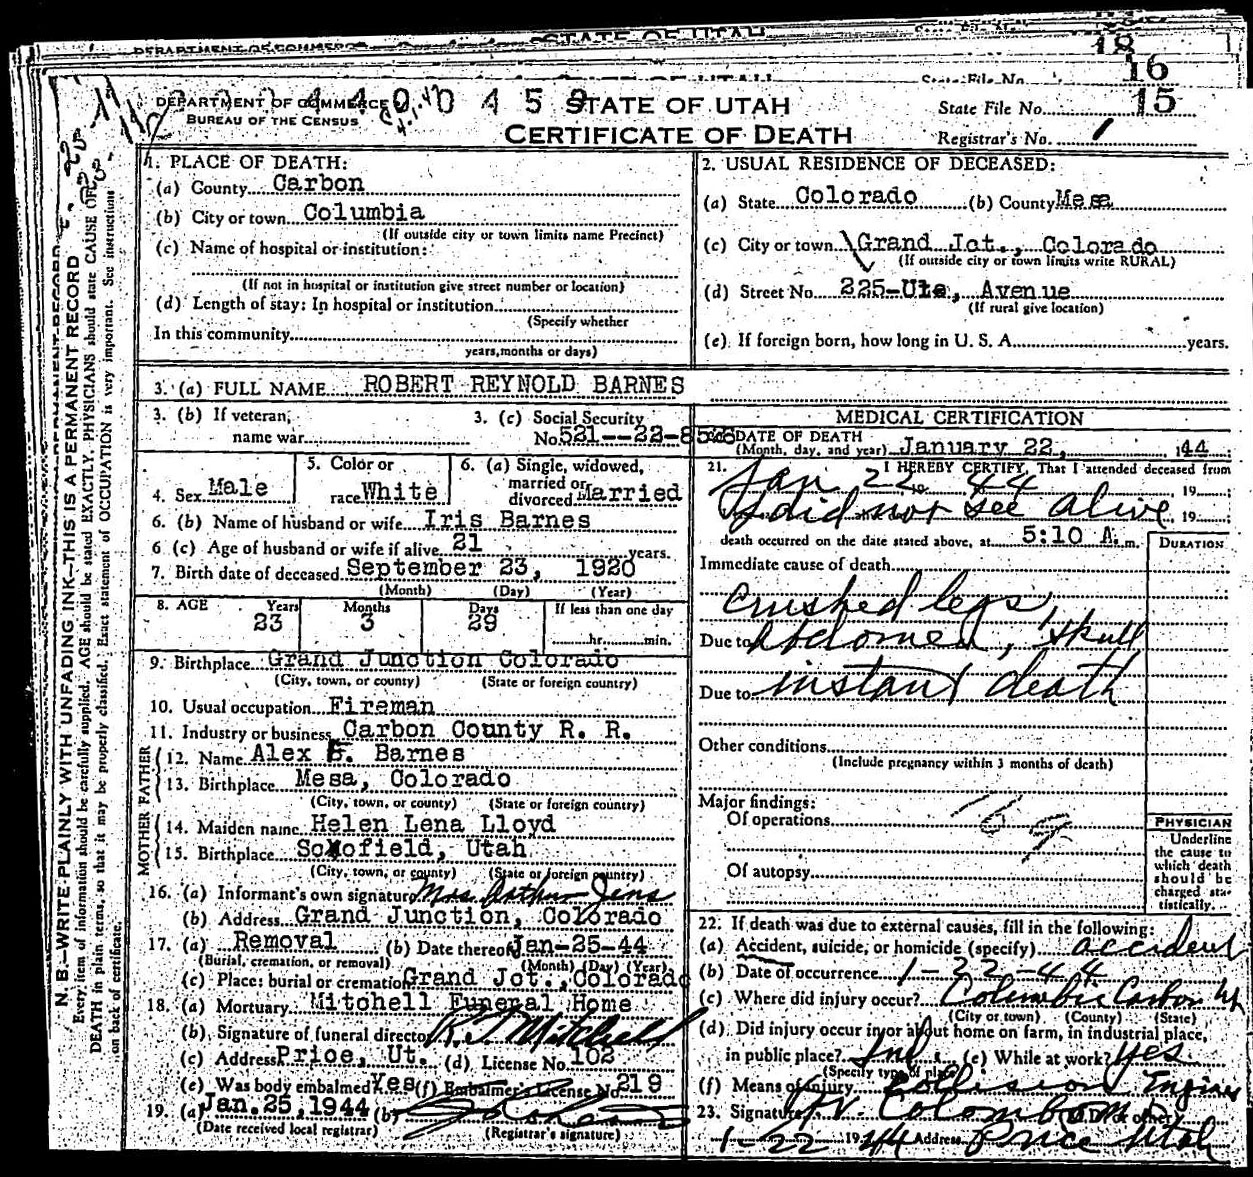 STATE OF UTAH
18
16
State File No.
DEPARTMENT OF COMMERCE
BUREAU OF THE CENSUS
0 0 4 5 9
STATE OF UTAH
CERTIFICATE OF DEATH
State File No. 15
Registrar's No. 1
N. B.—WRITE PLAINLY WITH UNFADING INK—THIS IS A PERMANENT RECORD
Every item of information should be carefully supplied. AGE should be stated EXACTLY. PHYSICIANS should state CAUSE OF
DEATH in plain terms, so that it may be properly classified. Exact statement of OCCUPATION is very important. See instructions
on back of certificate.
1. PLACE OF DEATH:
(a) County Carbon
(b) City or town Columbia
(If outside city or town limits name Precinct)
(c) Name of hospital or institution:
(If not in hospital or institution give street number or location)
(d) Length of stay: In hospital or institution
(Specify whether
In this community
years, months or days)
2. USUAL RESIDENCE OF DECEASED:
(a) State Colorado (b) County Mesa
(c) City or town Grand Jct., Colorado
(If outside city or town limits write RURAL)
(d) Street No. 225-Ute, Avenue
(If rural give location)
(e) If foreign born, how long in U. S. A. years.
3. (a) FULL NAME ROBERT REYNOLD BARNES
3. (b) If veteran, name war
3. (c) Social Security No. 521--22-85
4. Sex Male
5. Color or race White
6. (a) Single, widowed, married or divorced Married
6. (b) Name of husband or wife Iris Barnes
6 (c) Age of husband or wife if alive 21 years.
7. Birth date of deceased September 23, 1920
(Month) (Day) (Year)
8. AGE Years Months Days If less than one day
23 3 29 hr. min.
9. Birthplace Grand Junction Colorado
(City, town, or county) (State or foreign country)
10. Usual occupation Fireman
11. Industry or business Carbon County R. R.
FATHER
12. Name Alex E. Barnes
13. Birthplace Mesa, Colorado
(City, town, or county) (State or foreign country)
MOTHER
14. Maiden name Helen Lena Lloyd
15. Birthplace Scofield, Utah
(City, town, or county) (State or foreign country)
16. (a) Informant's own signature Mrs. Arthur Jens
(b) Address Grand Junction, Colorado
17. (a) Removal (b) Date thereof Jan-25-44
(Burial, cremation, or removal) (Month) (Day) (Year)
(c) Place: burial or cremation Grand Jct., Colorado
18. (a) Mortuary Mitchell Funeral Home
(b) Signature of funeral director R. J. Mitchell
(c) Address Price, Ut. (d) License No. 102
(e) Was body embalmed Yes (f) Embalmer's License No. 219
19. (a) Jan. 25, 1944 (b)
(Date received local registrar) (Registrar's signature)
MEDICAL CERTIFICATION
20. DATE OF DEATH
(Month, day, and year) January 22, 1944
21. I HEREBY CERTIFY, That I attended deceased from
Jan 22 44 19
I did not see alive 19
death occurred on the date stated above, at 5:10 A. m.
DURATION
Immediate cause of death
Crushed legs,
Due to abdomen, skull
Due to instant death
Other conditions
(Include pregnancy within 3 months of death)
Major findings:
Of operations
169
Of autopsy
PHYSICIAN
Underline
the cause to
which death
should be
charged sta-
tistically.
22. If death was due to external causes, fill in the following:
(a) Accident, suicide, or homicide (specify) accident
(b) Date of occurrence 1-22-44
(c) Where did injury occur? Columbia Carbon Ut
(City or town) (County) (State)
(d) Did injury occur in or about home on farm, in industrial place,
in public place? Ind. (e) While at work? Yes
(Specify type of place)
(f) Means of injury Collision Engine
23. Signature Colombo
1-22 1944 Address Price Utah